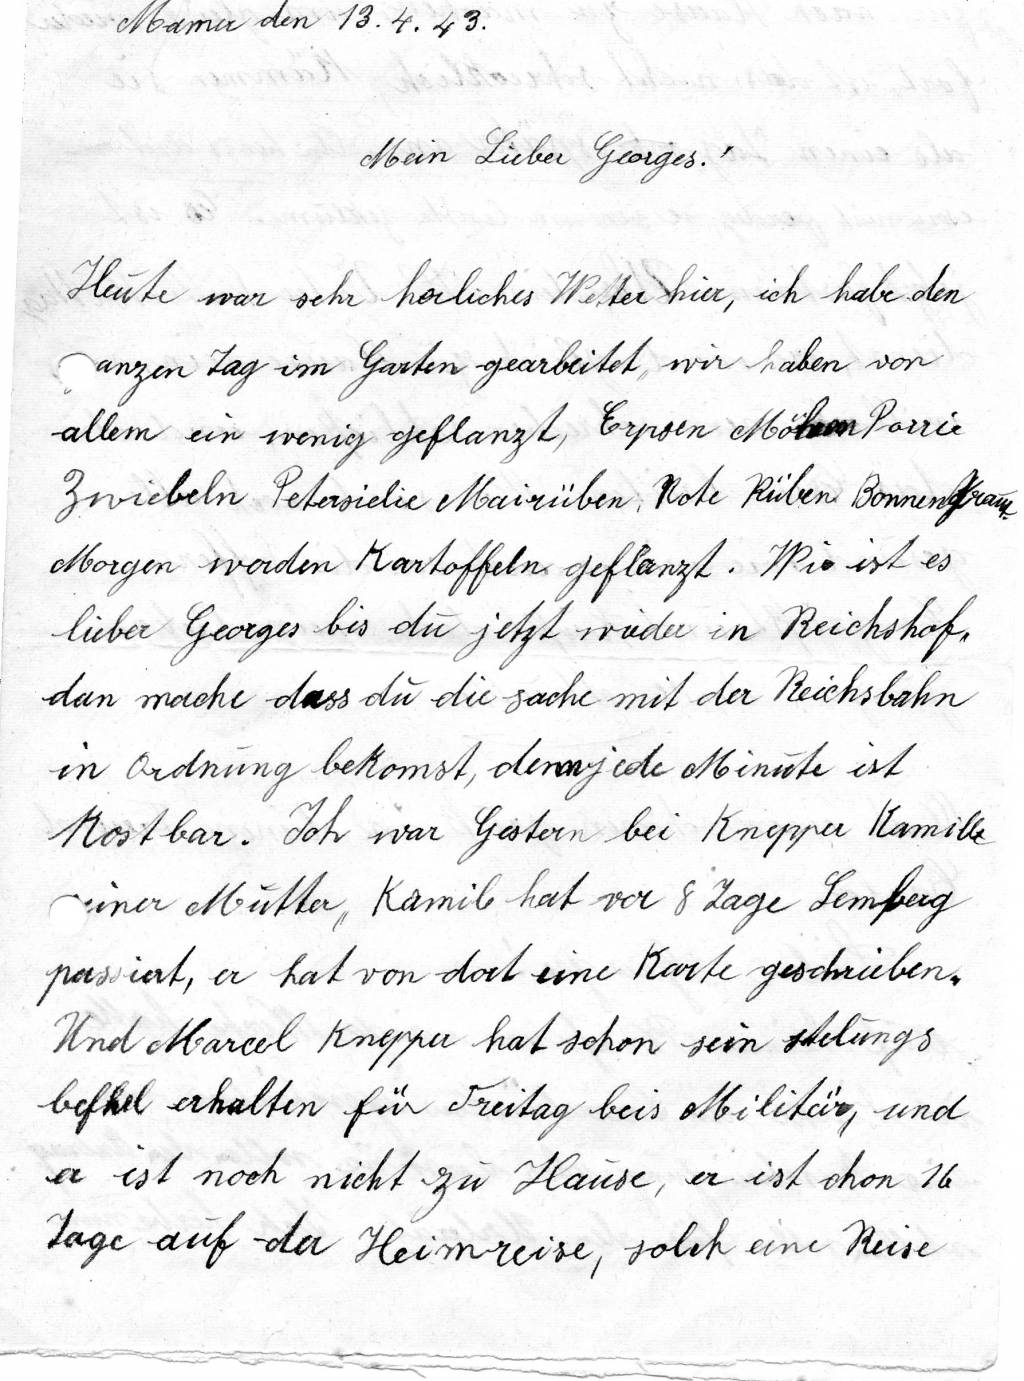 Mamer den 13. 4. 43.
Mein Lieber Georges.!
Heute war sehr herliches Wetter hier, ich habe den
ganzen Tag im Garten gearbeitet, wir haben von
allem ein wenig geflanzt, Erpsen Möhren Porrie
Zwiebeln Petersielie Mairüben, Rote Rüben Bonnen Kraut.
Morgen werden Kartoffeln geflanzt. Wie ist es
lieber Georges bis du jetzt wieder in Reichshof,
dan mache dass du die sache mit der Reichsbahn
in Ordnung bekomst, denn jede Minute ist
Kostbar. Ich war Gestern bei Knepper Kamille
seiner Mutter, Kamil hat vor 8 Tage Lemberg
passiert, er hat von dort eine Karte geschrieben.
Und Marcel Knepper hat schon sein stelungs
befhel erhalten für Freitag beis Militär, und
er ist noch nicht zu Hause, er ist chon 16
Tage auf der Heimreise, solch eine Reise